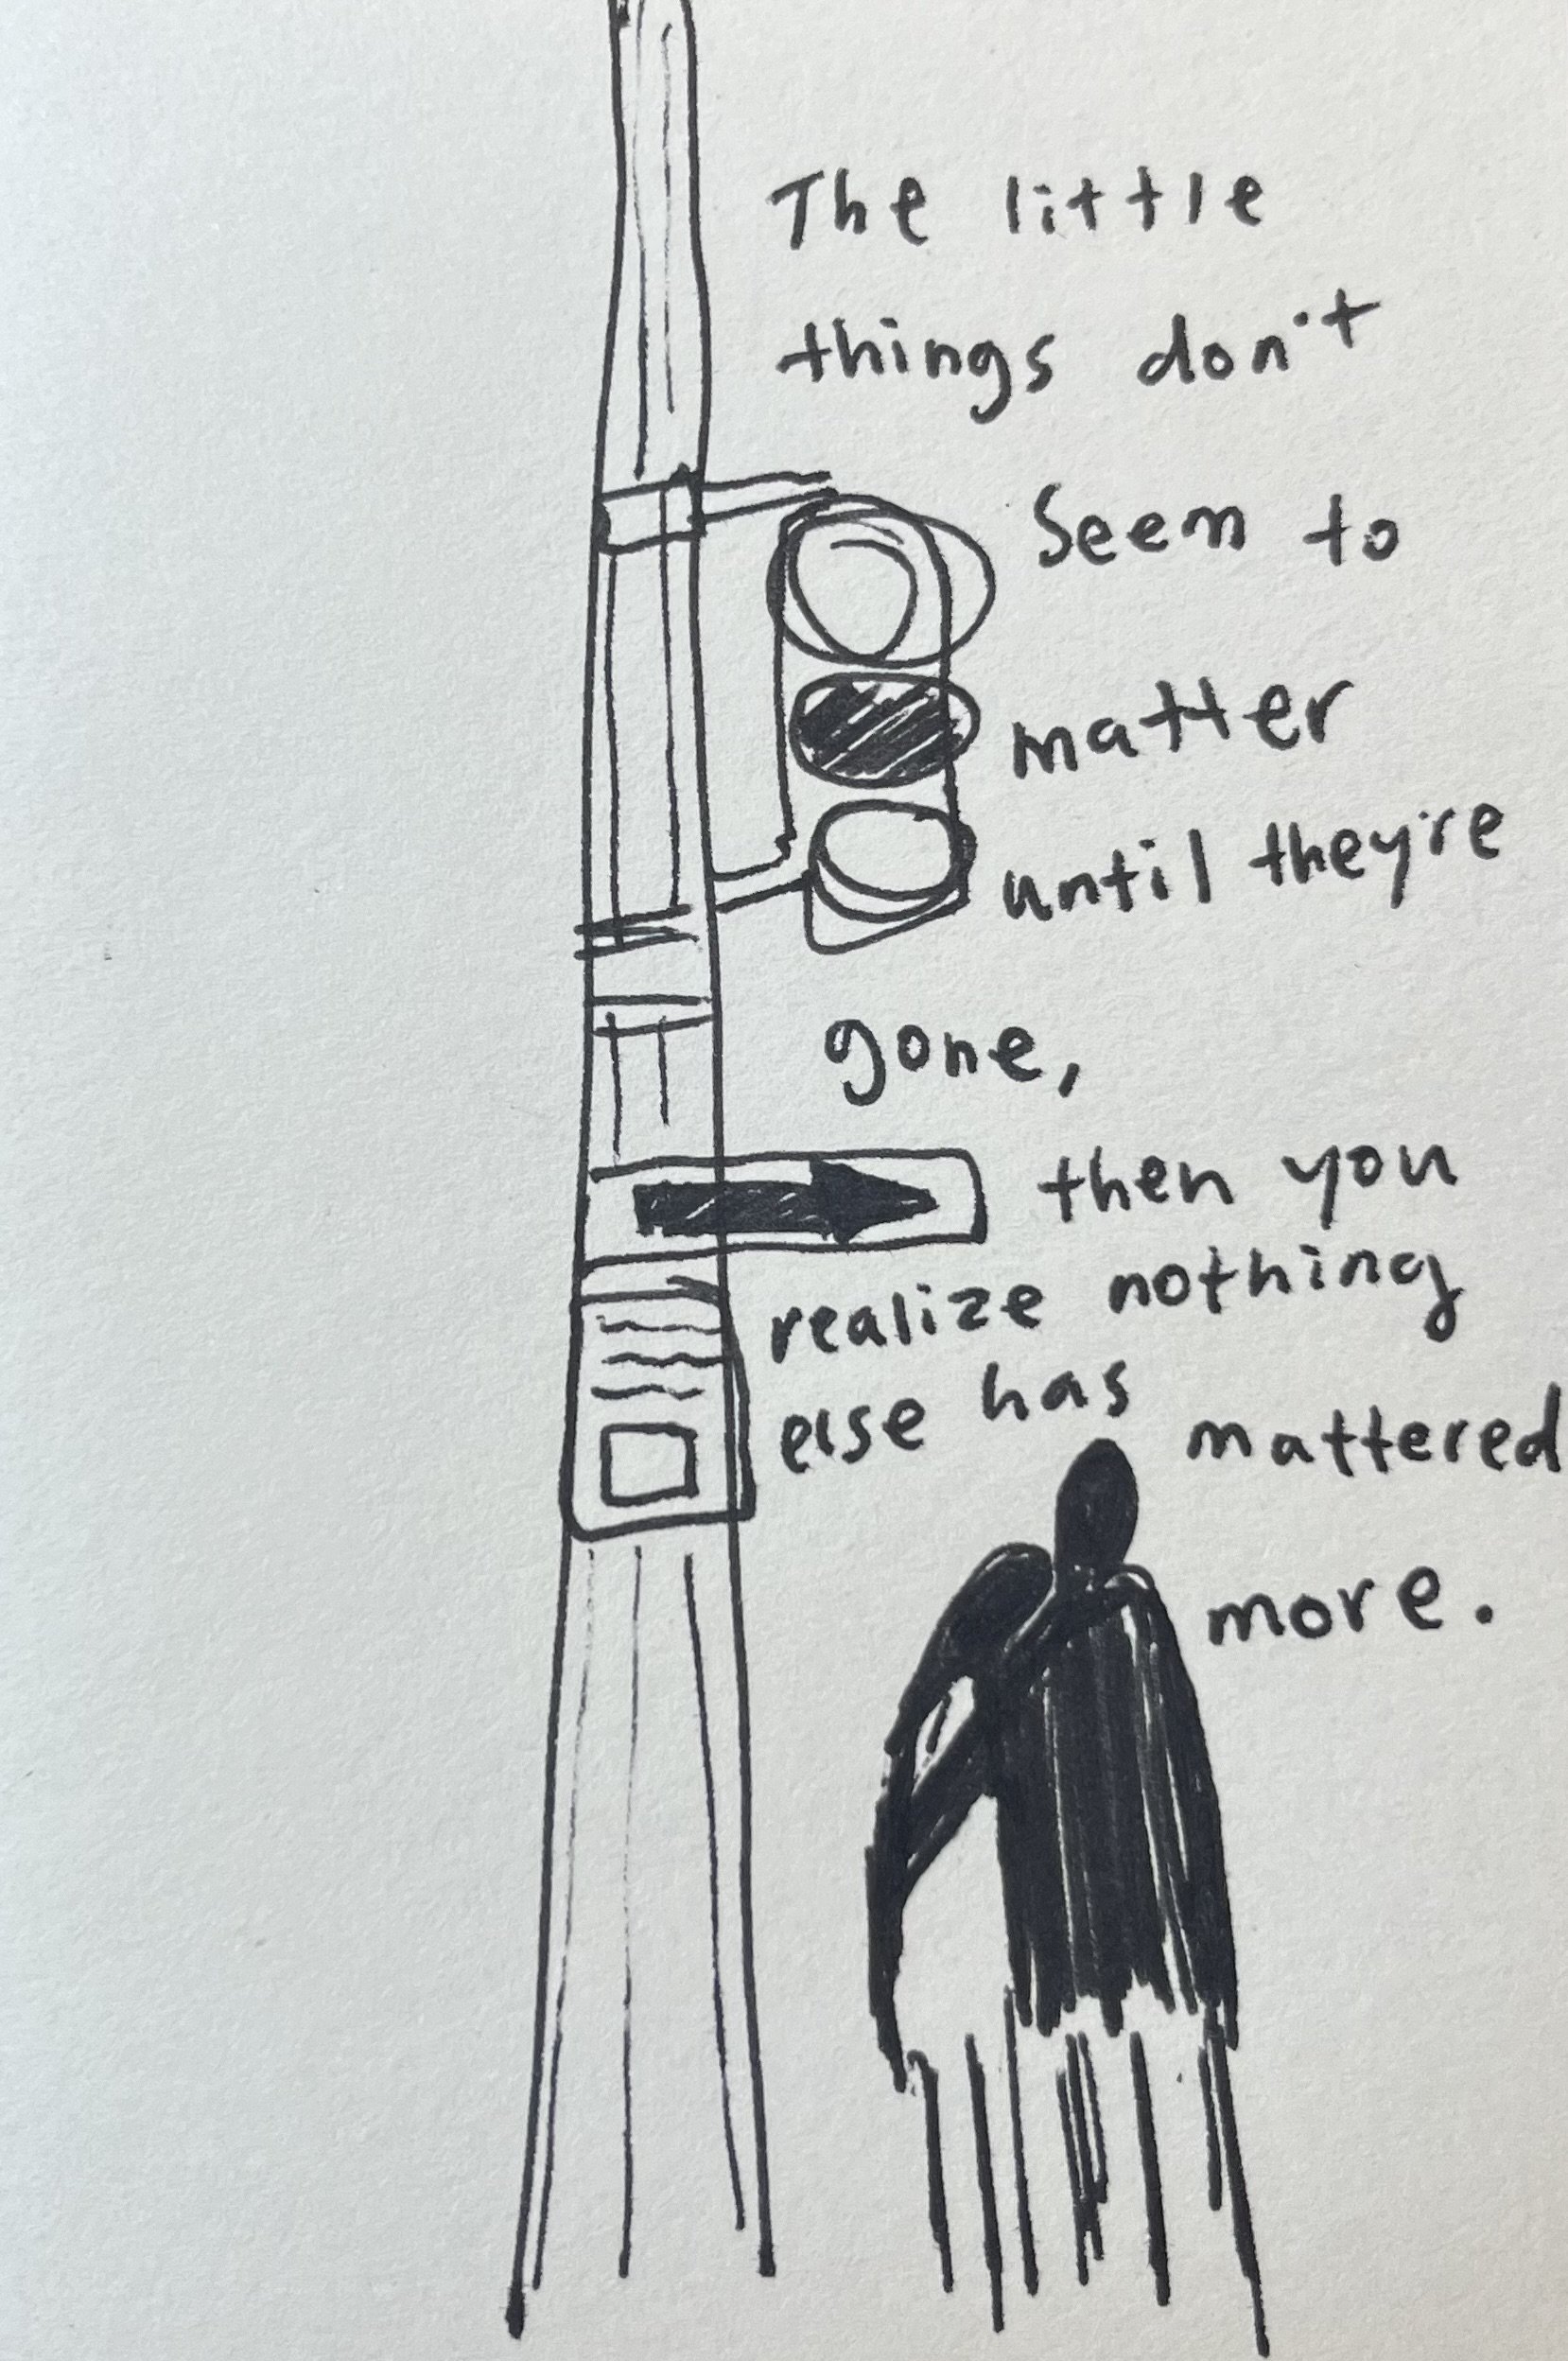 The little
things don't
seem to
matter
until they're
gone,
then you
realize nothing
else has mattered
more.